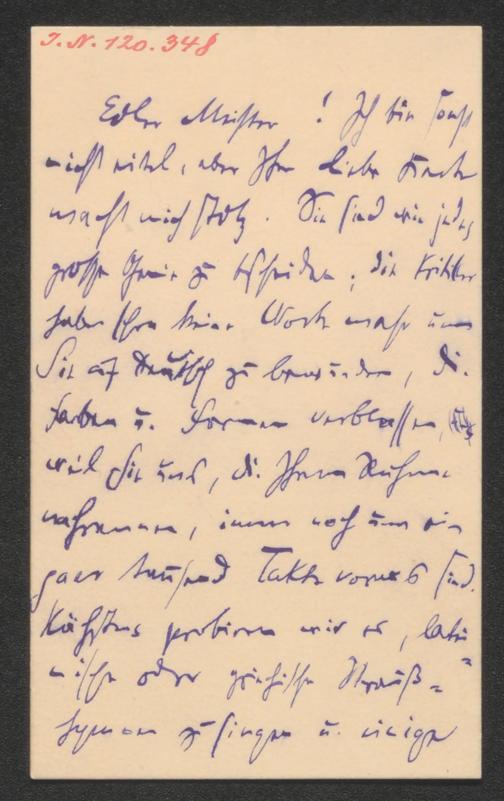 I.N. 120.348
Edler Meister! Ich bin sonst
nicht eitel, aber Ihre liebe Karte
macht mich stolz. Sie sind wie jedes
große Genie zu bescheiden; die Kritiker
haben schon keine Worte mehr um
Sie auf Deutsch zu bewundern, die
Farben u. Formen verblassen,
weil Sie uns, die Ihrem Ruhme
nachrennen, immer noch um ein
paar tausend Takte voraus sind.
Nächstens probieren wir es, latei
nische oder griechische Strauß-
hymnen zu singen u. einige